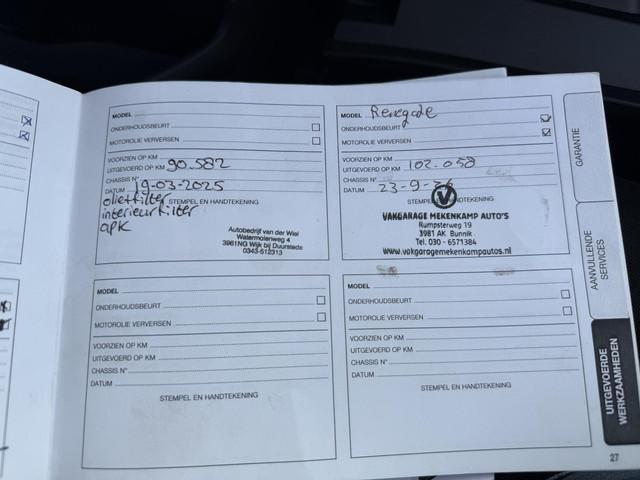 MODEL
ONDERHOUDSBEURT
MOTOROLIE VERVERSEN
VOORZIEN OP KM
UITGEVOERD OP KM 90.582
CHASSIS N°
DATUM 19-03-2025
STEMPEL EN HANDTEKENING
oliefilter
interieurfilter
APK
Autobedrijf van der Wiel
Watermolenweg 4
3961NG Wijk bij Duurstede
0343-512313
MODEL Renegade
ONDERHOUDSBEURT
MOTOROLIE VERVERSEN
VOORZIEN OP KM
UITGEVOERD OP KM 102.058
CHASSIS N°
DATUM 23-9-
VAKGARAGE MEKENKAMP AUTO'S
Rumpsterweg 19
3981 AK Bunnik
Tel. 030 - 6571384
www.vakgaragemekenkampautos.nl
MODEL
ONDERHOUDSBEURT
MOTOROLIE VERVERSEN
VOORZIEN OP KM
UITGEVOERD OP KM
CHASSIS N°
DATUM
STEMPEL EN HANDTEKENING
MODEL
ONDERHOUDSBEURT
MOTOROLIE VERVERSEN
VOORZIEN OP KM
UITGEVOERD OP KM
CHASSIS N°
DATUM
STEMPEL EN HANDTEKENING
GARANTIE
AANVULLENDE
SERVICES
UITGEVOERDE
WERKZAAMHEDEN
27